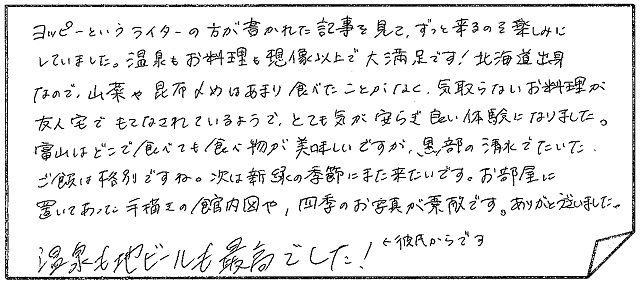 ヨッピーというライターの方が書かれた記事を見て、ずっと来るのを楽しみに
していました。温泉もお料理も想像以上で大満足です！北海道出身
なので、山菜や昆布〆めはあまり食べたことがなく、気取らないお料理が
友人宅でもてなされているようで、とても気が安らぎ良い体験になりました。
富山はどこで食べても食べ物が美味しいですが、黒部の清水でたいた
ご飯は格別ですね。次は新緑の季節にまた来たいです。お部屋に
置いてあった手描きの館内図や、四季のお写真が素敵です。ありがとう
ございました。
温泉も地ビールも最高でした！ ←彼氏からです